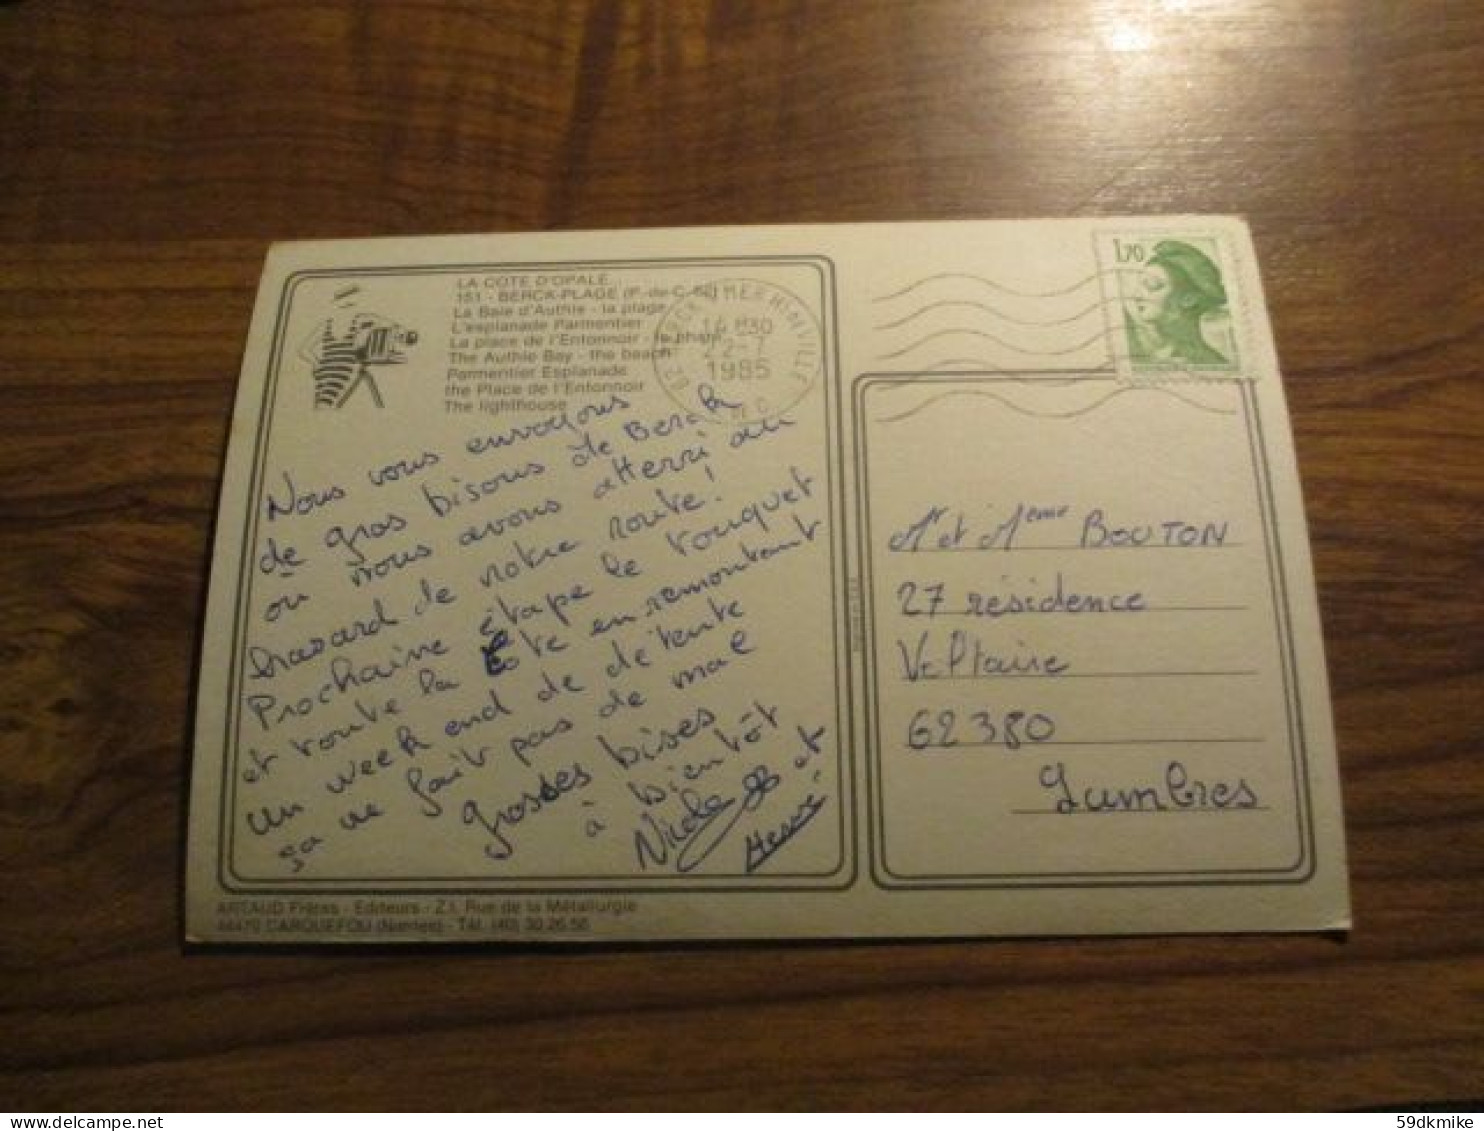 LA COTE D'OPALE
151 - BERCK-PLAGE (P.-de-C. 62)
La Baie d'Authie - la plage
L'esplanade Parmentier
La place de l'Entonnoir - le phare
The Authie Bay - the beach
Parmentier Esplanade
the Place de l'Entonnoir
The lighthouse
62 BERCK
14 H 30
22-7
1985
1,70
Nous vous envoyons
de gros bisous de Berck
où nous avons atterri au
hasard de notre route!
Prochaine étape le touquet
et toute la côte en remontant
un week end de détente
ça ne fait pas de mal
Grosses bises
à bientôt
Nicole et
Hervé
Mr et Mme BOUTON
27 résidence
Voltaire
62380
Lumbres
ARTAUD Frères - Editeurs - Z.I. Rue de la Métallurgie
44470 CARQUEFOU (Nantes) - Tél. (40) 30.26.56
59dkmike